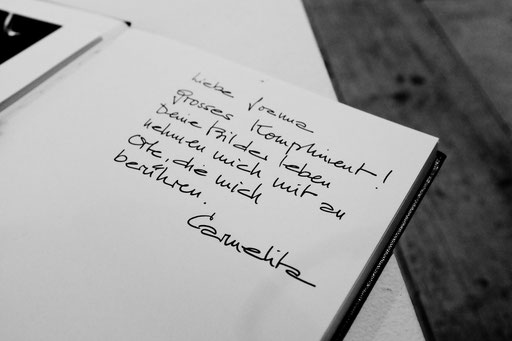 Liebe Joanna
Grosses Kompliment!
Deine Bilder leben
nehmen mich mit an
Orte, die mich
berühren.
Carmelita